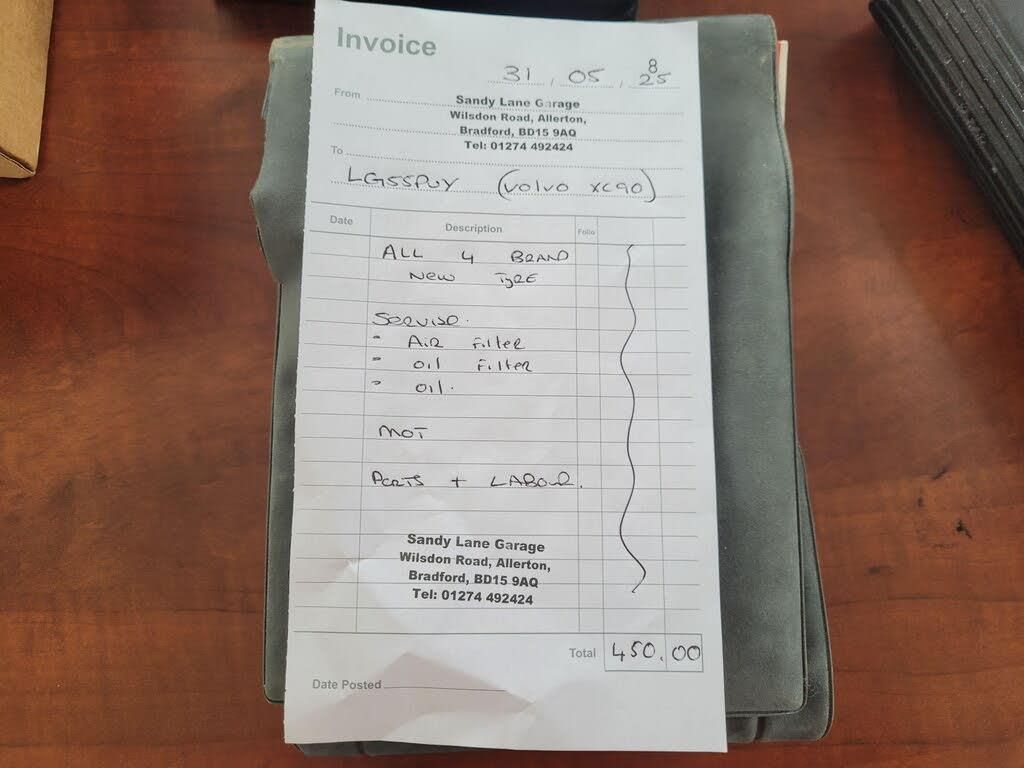 Invoice
31 . 05 . 8
25
From
Sandy Lane Garage
Wilsdon Road, Allerton,
Bradford, BD15 9AQ
Tel: 01274 492424
To
LG55PUY (Volvo XC90)
Date Description Folio
ALL 4 BRAND
NEW TyRE
Servise.
- AiR Filter
- oil Filter
- oil.
MOT
Parts + LABOUR.
Sandy Lane Garage
Wilsdon Road, Allerton,
Bradford, BD15 9AQ
Tel: 01274 492424
Total 450.00
Date Posted